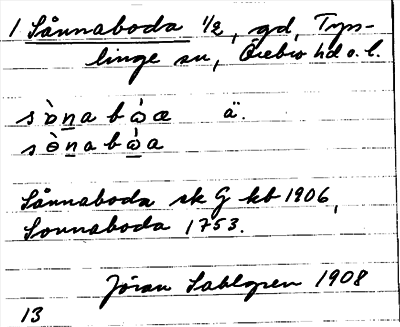 1 Sånnaboda 1/2, gd, Tys-
linge sn, Örebro hd o. l.
s ò n a b ώ æ ä.
s ò n a b ώ a
Sånnaboda sk G kb 1906,
Sonnaboda 1753.
Jöran Sahlgren 1908
13